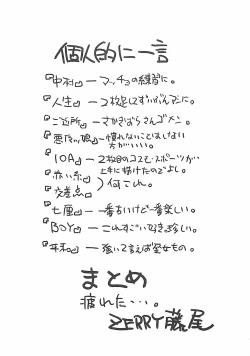 個人的に一言
『中村』ーマッチョの練習に。
『人生』ー2枚足してずいぶんマシに。
『ご近所』ーさかきばらさんゴメン。
『悪魔ッ娘』ー慣れないことはしない
方がいい。
『10A』ー2枚目のコスモ・スポーツが
上手に描けたのでよし。
『赤い糸』
『交差点』 何これ。
『七厘』ー一番古いけど一番楽しい。
『BOY』ーこれすごい
『平和』ー強いて言えば
まとめ
疲れた・・・。
ZERRY藤尾